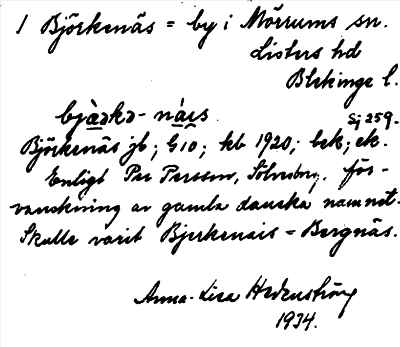 1 Björkenäs = by i Mörrums sn.
Listers hd
Blekinge l.
bjà̱rkə- nä́es
Sj 259.
Björkenäs jb; G10; kb 1920; bek; ek.
Enligt Per Persson, Sölvesborg, för-
vanskning av gamla danska namnet.
Skulle varit Bjerkenais = Bergnäs.
Anna-Lisa Hedenström
1934.